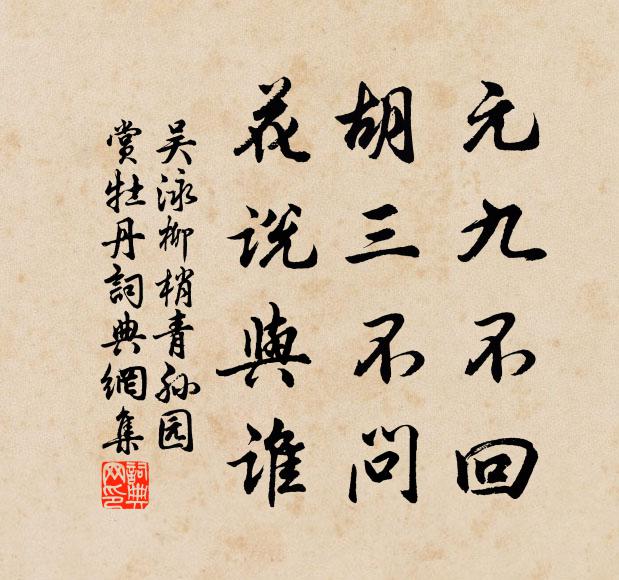 元九不回
胡三不问
花说與谁
吴泳柳梢青孙园
赏牡丹詞典網集
詞典网印